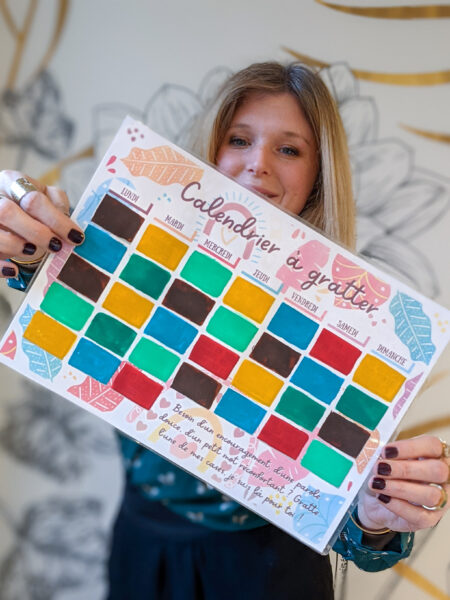 Calendrier à gratter
LUNDI MARDI MERCREDI JEUDI VENDREDI SAMEDI DIMANCHE
Besoin d'un encouragement, d'une parole
douce, d'un petit mot réconfortant ? Gratte
l'une de mes cases, je suis là pour toi !